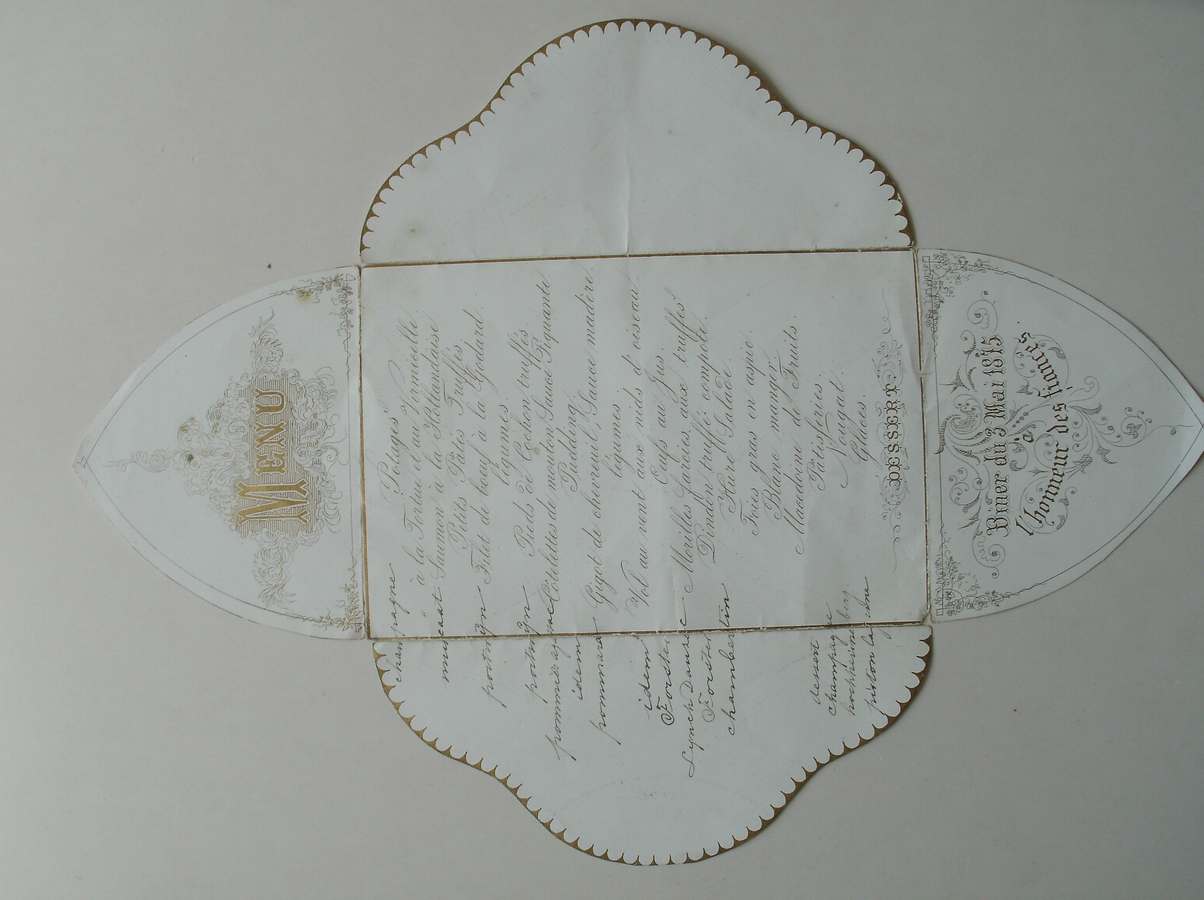 MENU
Potages
à la Tortue et au Vermicelle
champagne
Saumon à la Hollandaise
muscaat
Petits Pâtés Truffés
Filet de bœuf à la Godard
portwijn
légumes
Pieds de Cochon truffés
portwijn
Côtelettes de mouton Sauce Piquante
Pudding
idem
Gigot de chevreuil, Sauce madère
pommard
légumes
Vol au vent aux nids d'oiseau
idem
Œufs au Jus.
Forster
Morilles farcies aux truffes
Lynch
Dindon truffé compote.
Forster
Hure Salade
chambertin
Foies gras en aspic.
Blanc manger
Macedoine de Fruits.
Pâtisseries.
Nougat.
Glaces.
dessert
champagne
DESSERT
Diner du 3 Mai 1875
à
l'honneur des fiancés